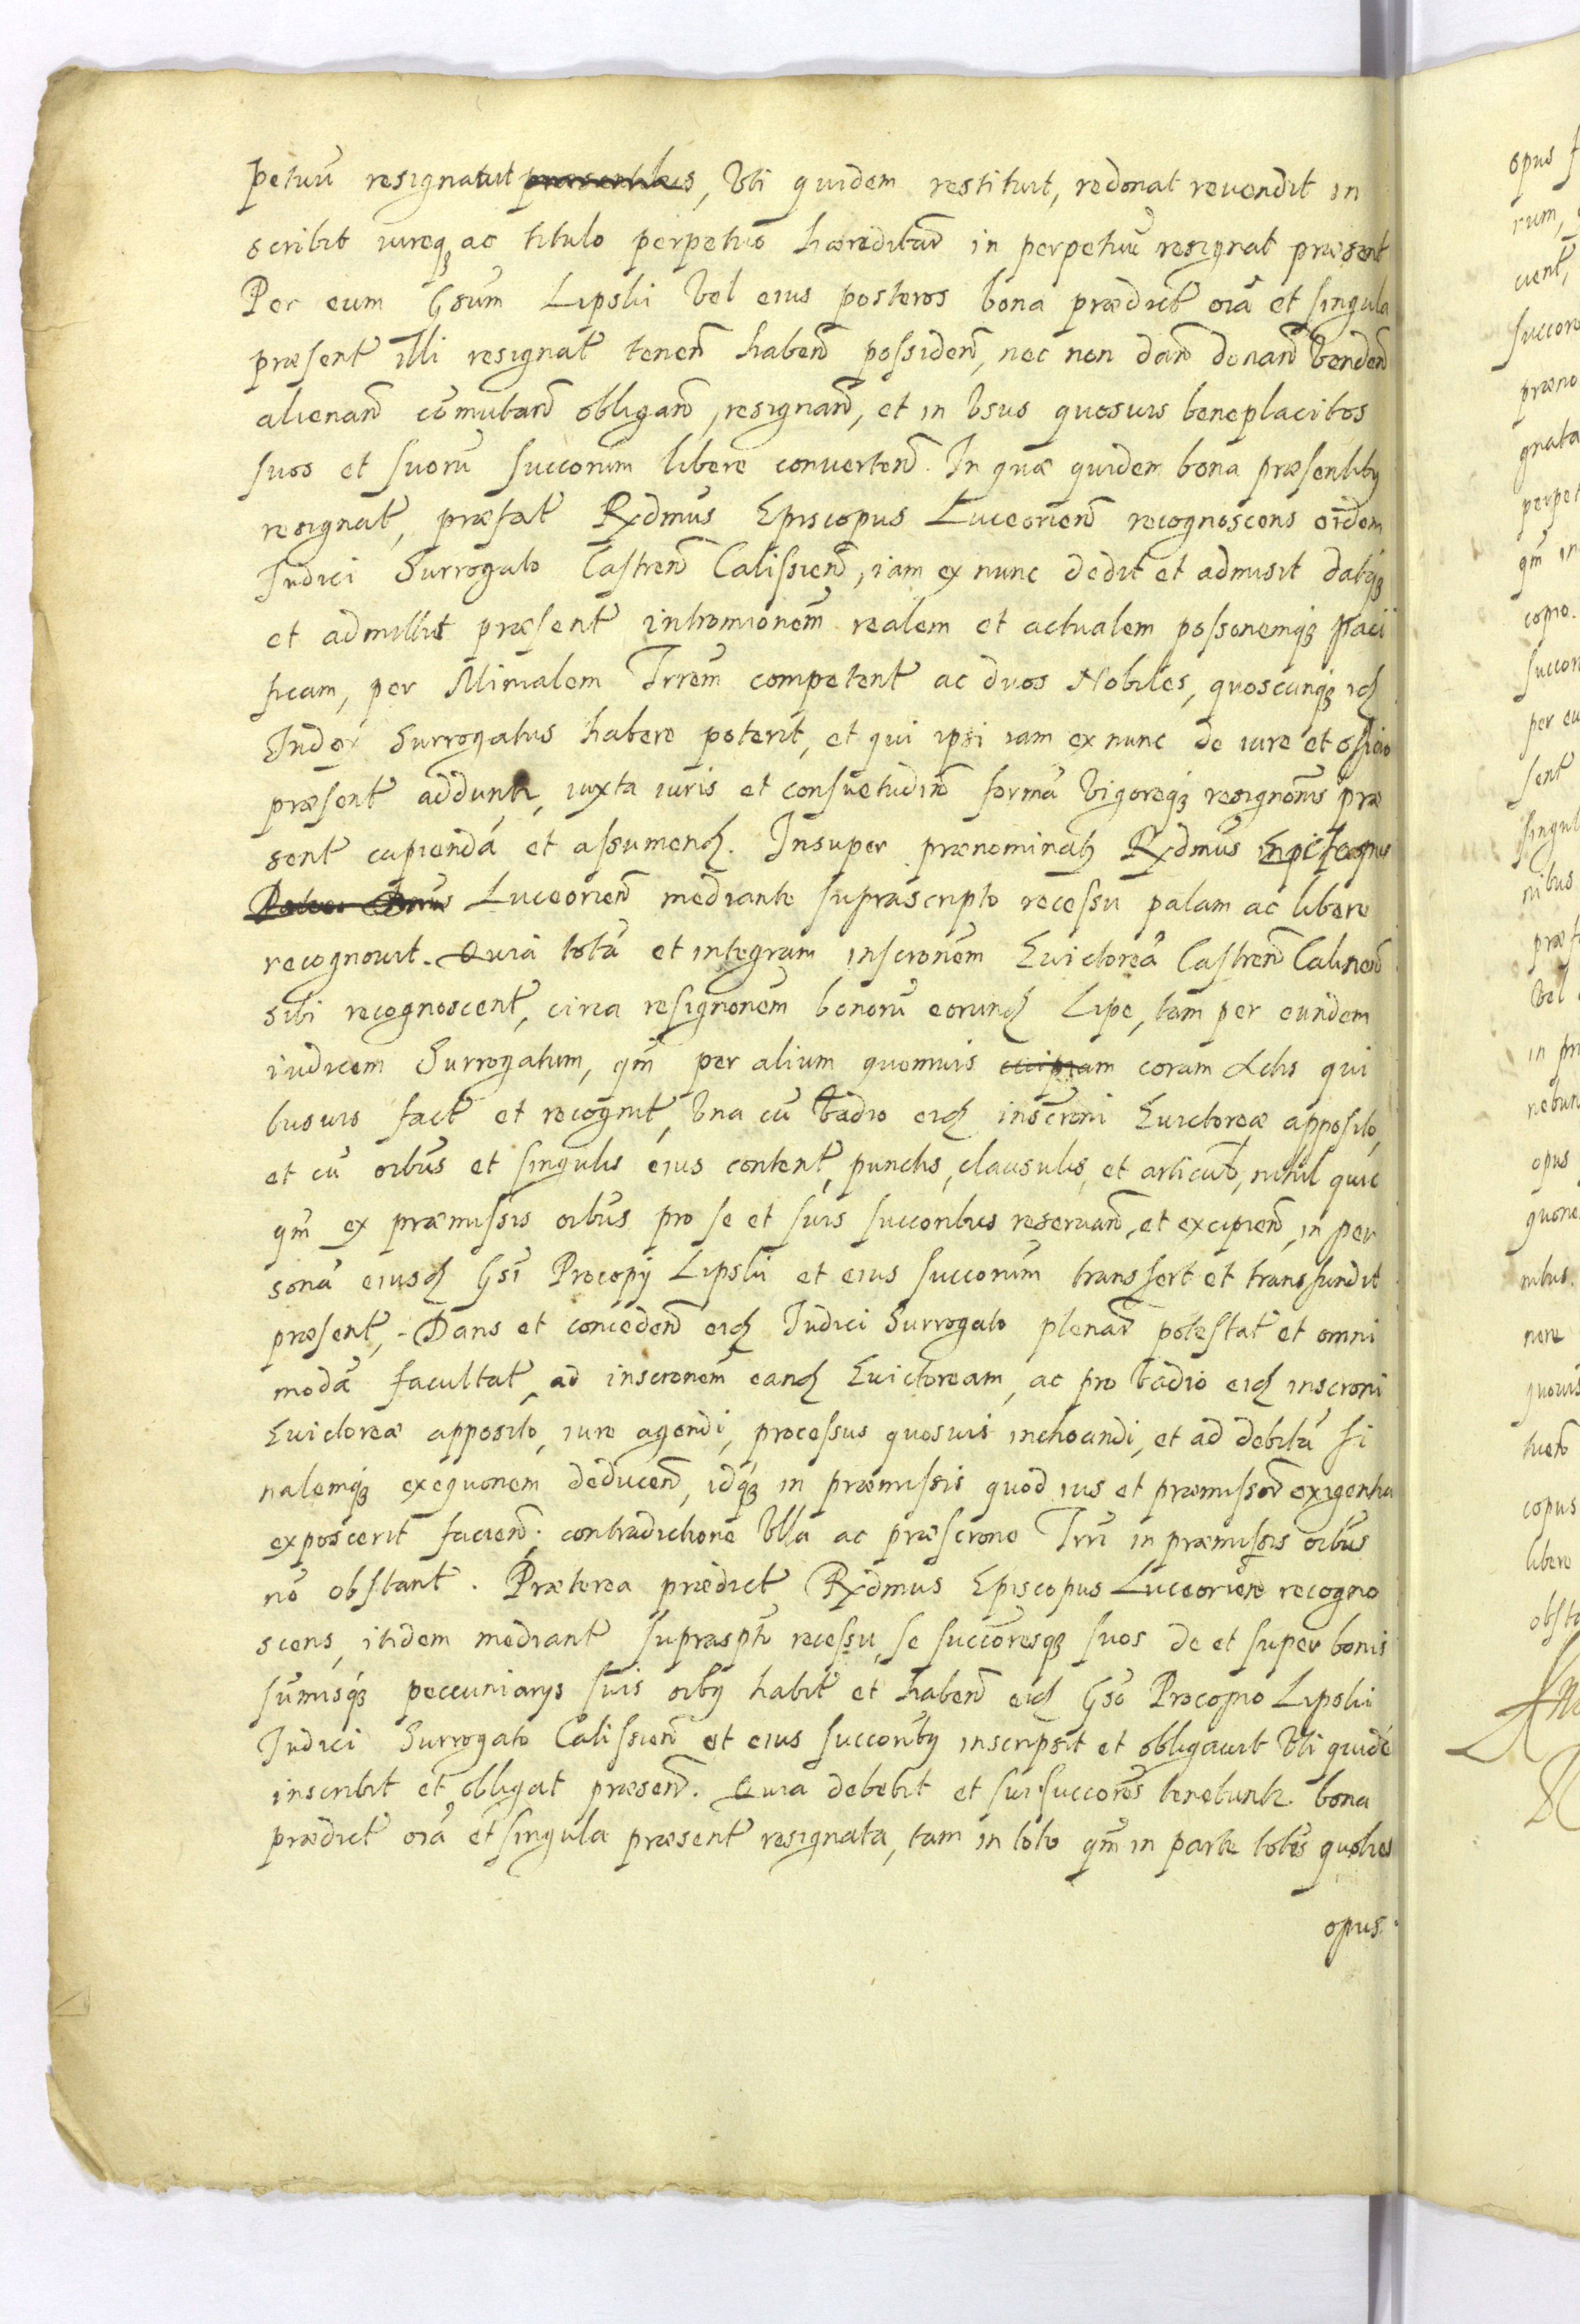 petuū resignauit praesentibus, Vti quidem restituit, redonat reuendit in
scribit iureq3 ac titulo perpetuo haereditar̃ in perpetuū resignat praesent̃
Per eum Gsum̃ Lipski Vel eius posteros bona praedict̃ oiã et singula
praesent̃ illi resignat̃ tenen̄ haben̄ possiden̄, nec non dan̄ donan̄ Venden̄
alienan̄ com̄utan̄ obligan̄, resignan̄, et in Vsus quosuis beneplacitos
suos et suorū succorum̃ libere conuerten̄. In quae quidem bona praesentiby
resignat̃, praefat̃ Rxdmus Episcopus Luceorien̄ recognoscens eidem
Iudici Surrogato Castren̄ Calissien̄, iam ex nunc dedit et admisit datq3
et admittit praesent̃ intromionem̃ realem et actualem possonemq3 paci
ficam, per Mirialem Trrem̃ competent̃ ac duos Nobiles, quoscunq3 id̃
Iudex Surrogatus habere poterit, et qui ipsi iam ex nunc de iure et officio
praesent̃ addunt̃, iuxta iuris et consuetudin̄ formā Vigoreq3 resignonis̃ prae
sent̃ capiendā et assumend̃. Insuper praenominat̃ Rxdmus Episcopus
Luceorien̄ mediante suprascripto recessu palam ac libere
recognouit. Quia totā et integram inscronem̃ Euictoreā Castren̄ Calissien̄
sibi recognoscent̃, circa resignonem̃ bonorū eorund̃ Lipe, tam per eundem
iudicem Surrogatum, qm̃ per alium quemuis coram Actis qui
busuis fact̃ et recognit̃, Vna cū Vadio eid̃ inscroni Euictoreae apposito,
et cū oibus̃ et singulis eius content̃, punctis, clausulis, et articul̃, nihil quic
qm̃ ex praemissis oibus̃ pro se et suis succoribus reseruan̄, et excipien̄, in per
sonā eiusd̃ Gsi Procopij Lipski et eius succorum̃ transfert et transfundit
praesent̃, - Dans et conceden̄ eid̃ Iudici Surrogato plenar̃ potestat̃ et omni
modā facultat̃, ad inscronem̃ eand̃ Euictoream, ac pro Vadio eid̃ inscroni
Euictoreae apposito, iure agendi, processus quosuis inchoandi, et ad debitā fi
nalemq3 exequonem deducen̄, idq3 in praemissis quod ius et praemissor̃ exigentia
exposcerit facien̄; contradictione Vlla ac praescrone Trri in praemissis oibus̃
nō obstant̃. Praeterea praedict̃ Rxdmus Episcopus Luceorien̄ recogno
scens, itidem mediant̃ suprasptō recessu, se succoresq3 suos de et super bonis
sum̄isq3 peccuniarijs suis oiby habit̃ et haben̄ eid̃ Gsō Procopio Lipski
Iudici Surrogato Calissien̄ et eius succoriby inscripsit et obligauit Vti quidē
inscribit et obligat praesen̄. Quia debebit et sui succores̃ tenebunt̃ bona
praedict̃ oiã et singula praesent̃ resignata, tam in toto qm̃ in parte toties̃ quoties
opus
opus f
rum,
cient,
succor
praeno
gnata
perpet
qm̃ in
copio.
succor
per eu
sent̃
singul
nibus
praef
Vel
in pr
nebun
opus
quone
nibus.
nere
quouis
tuen̄
copus
libere
obsta